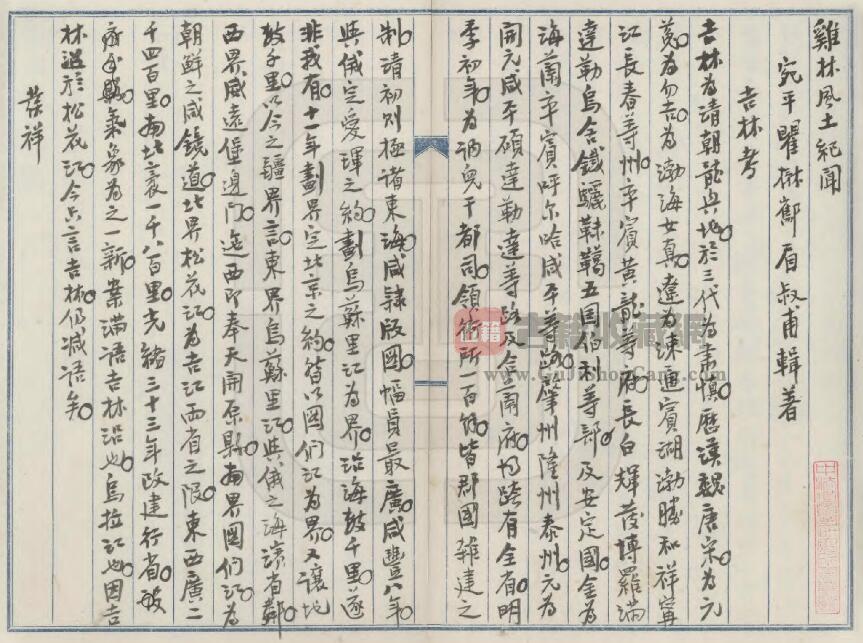 雞林風土紀聞
宛平瞿 眉叔甫輯著
吉林考
吉林為清朝龍興地於三代為肅慎歷漢魏唐宋為元
菟為勿吉為渤海女真遼為涑 通賓湖渤勝和祥寧
江長春等州率賓黃龍等府長白輝發博羅滿
達勒烏舍鐵驪靺鞨五国伯利等部及安定國金為
海蘭率賓呼尔哈咸平等路肇州隆州泰州元為
開元咸平碩達勒達等路及 府均跨有全省明
季初年為 兒干都司領衛所一百餘皆郡國雜建之
制清初則極諸東海咸隸版圖幅員最廣咸豐八年
與俄定愛琿之約劃烏蘇里江為界沿海數千里遂
非我有十一年劃界定北京之約皆以圖們江為界又讓地
數千里以今之疆界言東界烏蘇里江與俄之海濱省鄰
西界威遠堡邊門迤西即奉天開原縣南界圖們江為
朝鮮之咸鏡道北界松花江為吉江兩省之限東西廣二
千四百里南北袤一千八百里光緒三十三年改建行省
氣象為之一新案滿語吉林沿也烏拉江也因吉
林沿於松花江今只言吉林仍減語矣
發祥
古籍收藏网
www.GuJiShouCang.com